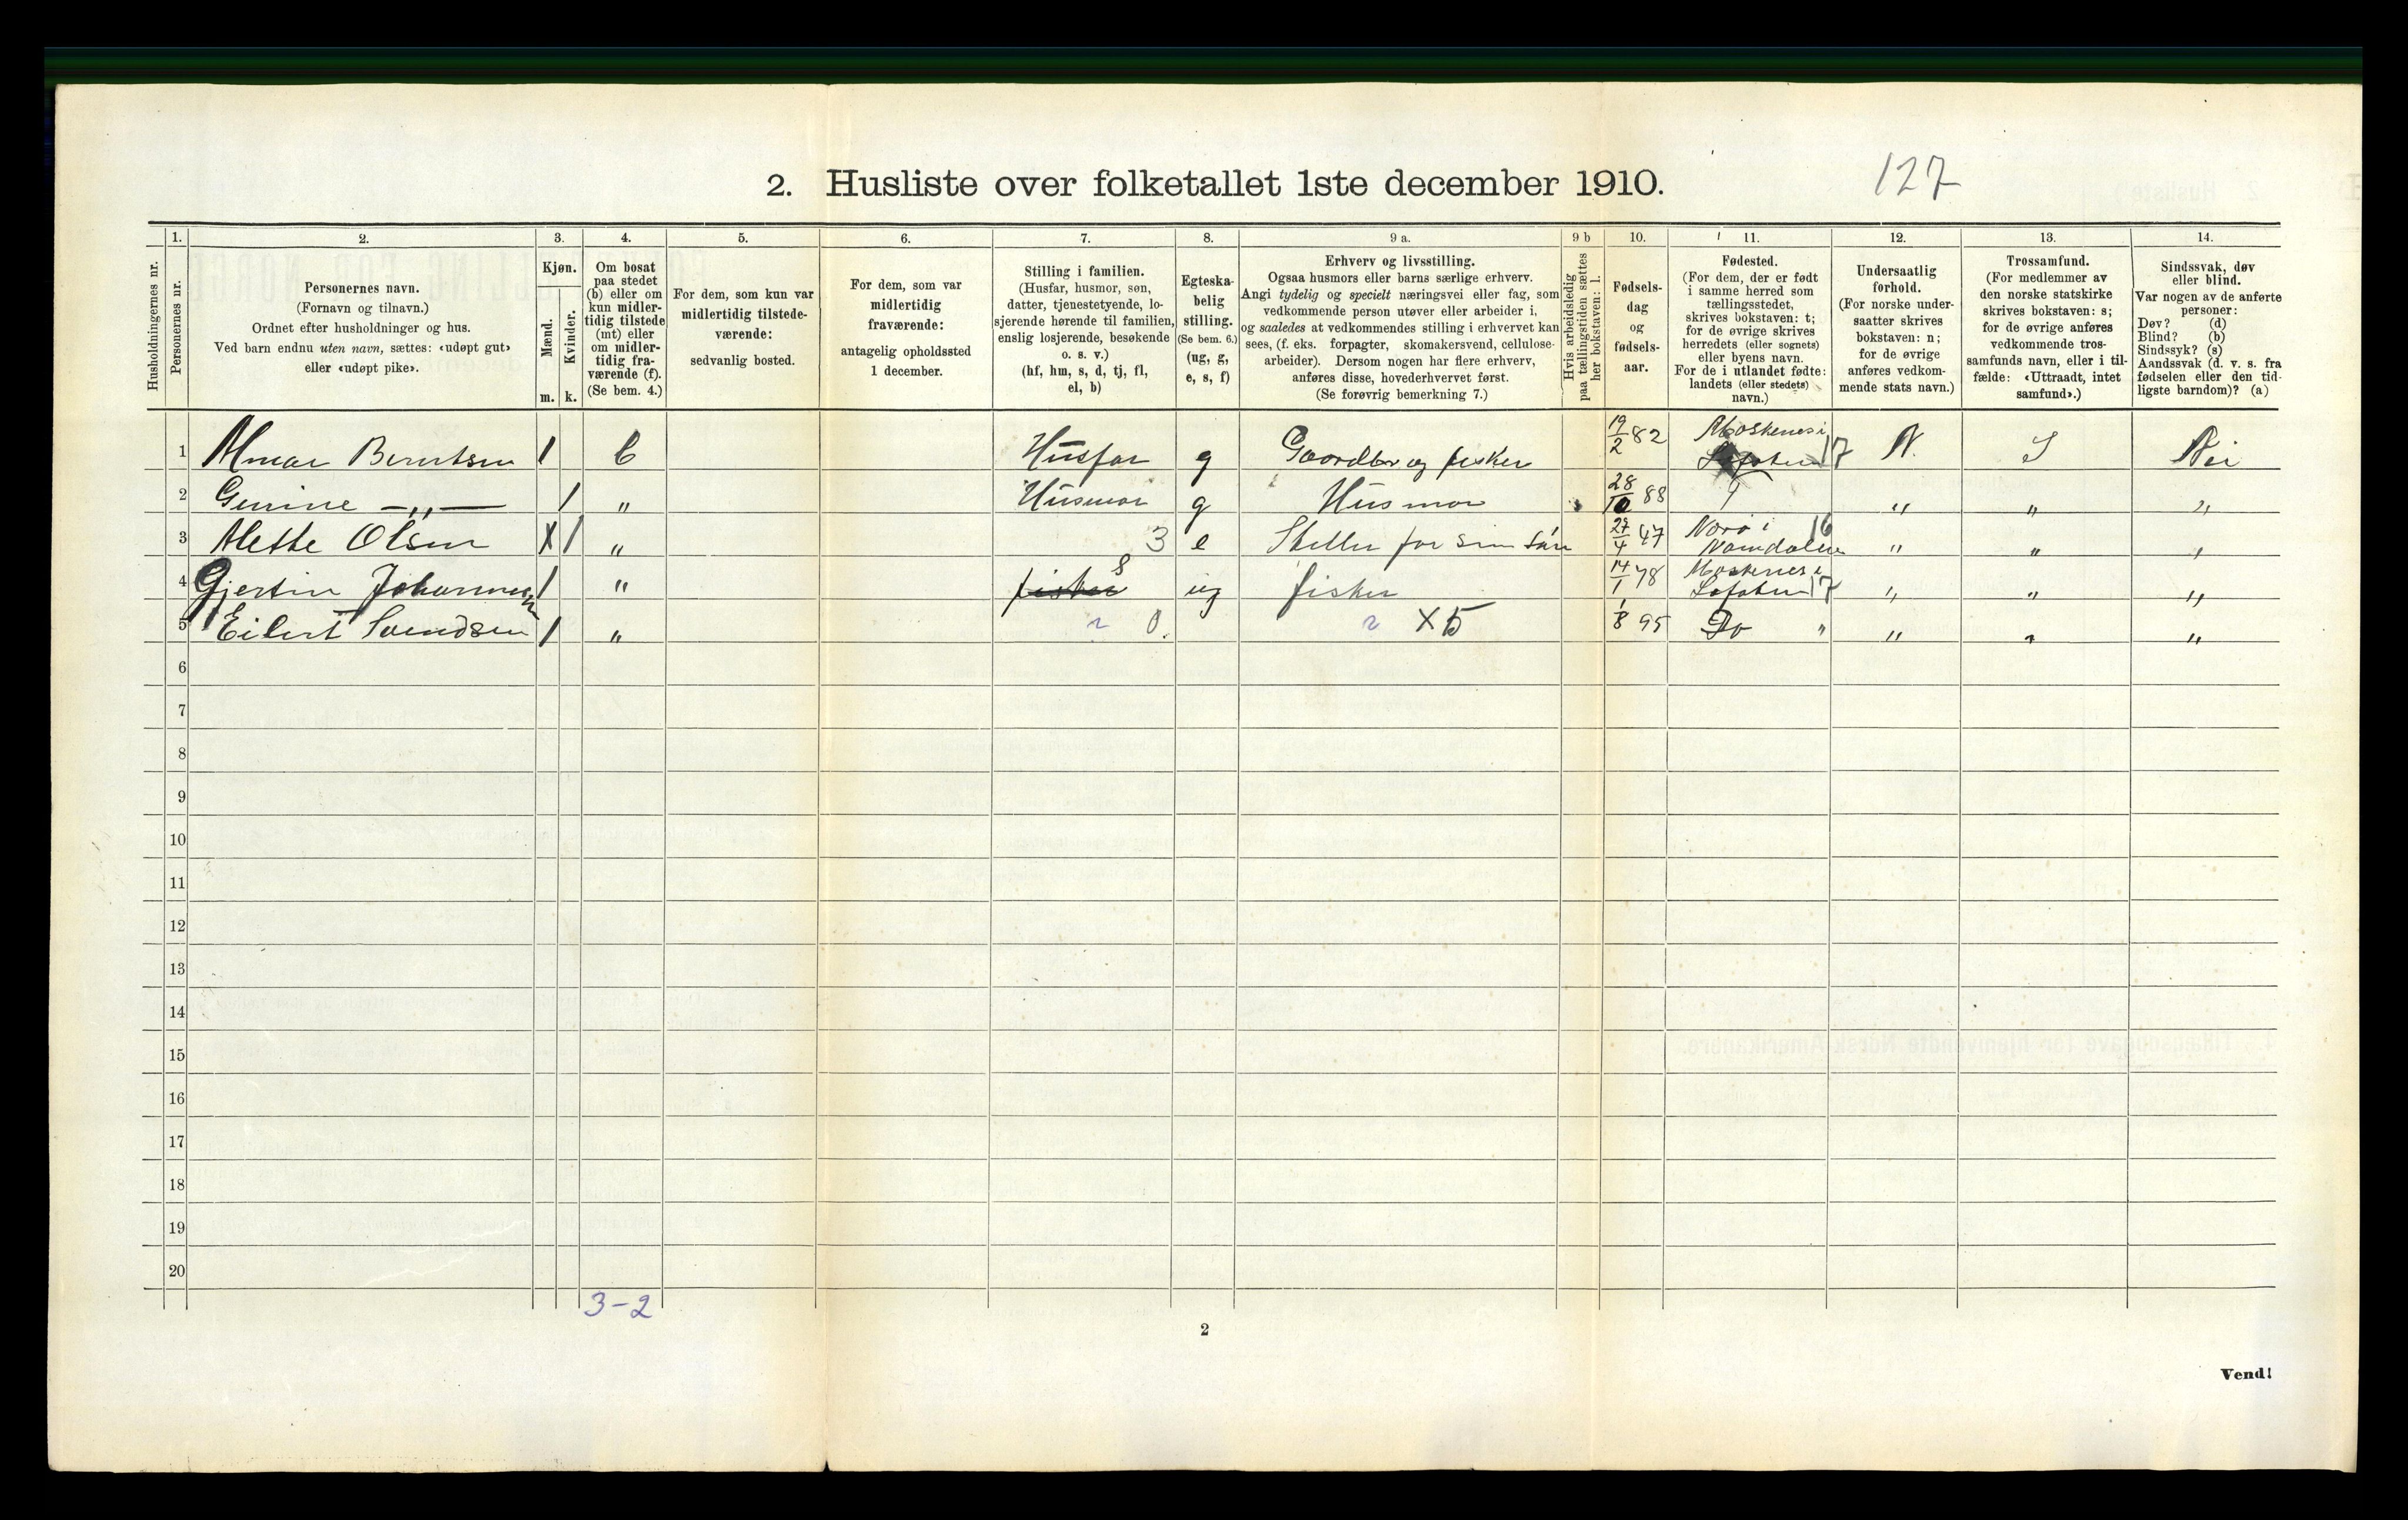 2. Husliste over folketallet 1ste december 1910.
127
Husholdningernes nr.
1.
Personernes nr.
2.
Personernes navn.
(Fornavn og tilnavn.)
Ordnet efter husholdninger og hus.
Ved barn endnu uten navn, sættes: «udøpt gut»
eller «udøpt pike».
3.
Kjøn.
Mænd.
Kvinder.
m. k.
4.
Om bosat
paa stedet
(b) eller om
kun midler-
tidig tilstede
(mt) eller
om midler-
tidig fra-
værende (f).
(Se bem. 4.)
5.
For dem, som kun var
midlertidig tilstede-
værende:
sedvanlig bosted.
6.
For dem, som var
midlertidig
fraværende:
antagelig opholdssted
1 december.
7.
Stilling i familien.
(Husfar, husmor, søn,
datter, tjenestetyende, lo-
sjerende hørende til familien,
enslig losjerende, besøkende
o. s. v.)
(hf, hm, s, d, tj, fl,
el, b)
8.
Egteska-
belig
stilling.
(Se bem. 6.)
(ug, g,
e, s, f)
9 a.
Erhverv og livsstilling.
Ogsaa husmors eller barns særlige erhverv.
Angi tydelig og specielt næringsvei eller fag, som
vedkommende person utøver eller arbeider i,
og saaledes at vedkommendes stilling i erhvervet kan
sees, (f. eks. forpagter, skomakersvend, cellulose-
arbeider). Dersom nogen har flere erhverv,
anføres disse, hovederhvervet først.
(Se forøvrig bemerkning 7.)
9 b
Hvis arbeidsledig
paa tællingstiden sættes
her bokstaven: l.
10.
Fødsels-
dag
og
fødsels-
aar.
11.
Fødested.
(For dem, der er født
i samme herred som
tællingsstedet,
skrives bokstaven: t;
for de øvrige skrives
herredets (eller sognets)
eller byens navn.
For de i utlandet fødte:
landets (eller stedets)
navn.)
12.
Undersaatlig
forhold.
(For norske under-
saatter skrives
bokstaven: n;
for de øvrige
anføres vedkom-
mende stats navn.)
13.
Trossamfund.
(For medlemmer av
den norske statskirke
skrives bokstaven: s;
for de øvrige anføres
vedkommende tros-
samfunds navn, eller i til-
fælde: «Uttraadt, intet
samfund».)
14.
Sindssvak, døv
eller blind.
Var nogen av de anførte
personer:
Døv? (d)
Blind? (b)
Sindssyk? (s)
Aandssvak (d. v. s. fra
fødselen eller den tid-
ligste barndom)? (a)
1 Almar Berntsen 1 b Husfar g Gaardbr og fisker 19/2 82 Moskenes i Lofoten 17 N. S Nei
2 Gurine —„— 1 „ Husmor g Husmor 28/10 88 „ „ „
3 Mette Olsen X 1 „ 3 e Steller for sin søn 27/4 47 Nærø i Namdalen 16 „ „ „
4 Gjertin Johannesen 1 „ fisker 8 ug fisker 14/1 78 Moskenes i Lofoten 17 „ „ „
5 Eilert Svendsen 1 „ 0. X 5 1/8 95 Do „ „ „ „
6
7
8
9
10
11
12
13
14
15
16
17
18
19
20
3-2
2
Vend!